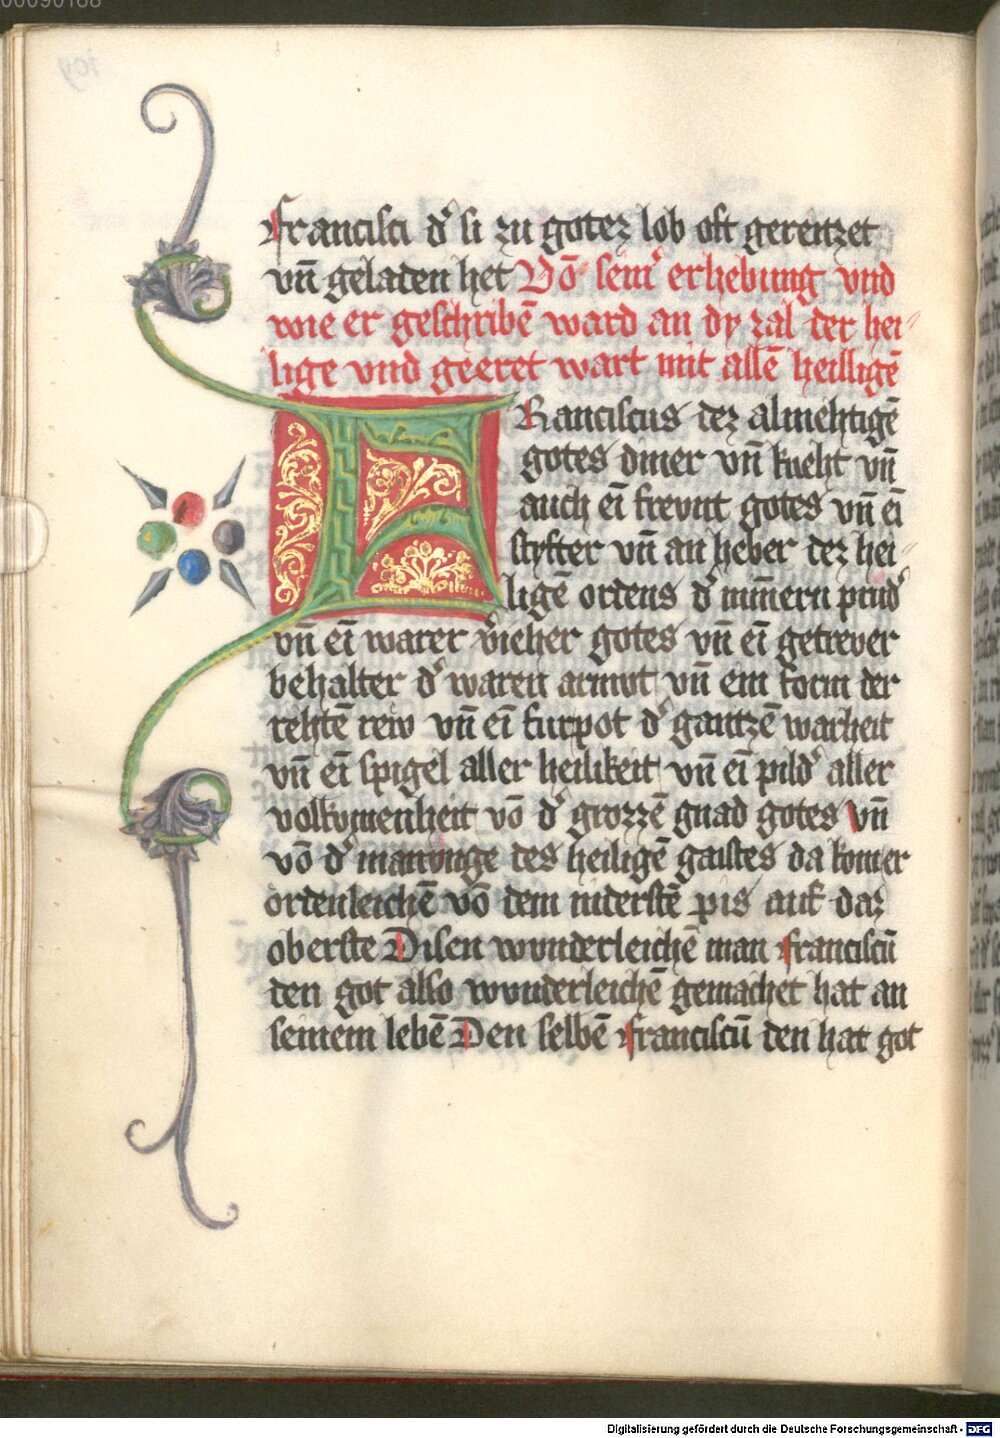 francisci dˀ si zu gotez lob oft gereitzet
vn̄ geladen het Võ seinˀ erhebung vnd
wie er geschribē ward an dy zal der hei⸗
lige vnd geeret wart mit allē heilligē
FRanciscus dez almehtigē
gotes diner vn̄ kneht vn̄
auch eī frevnt gotes vn̄ eī
styfter vn̄ an heber dez hei⸗
ligē ordens dˀ minnern prudˀ
vn̄ eī warer v̄ieher gotes vn̄ eī getrever
behalter dˀ waren armvt vn̄ ein form der
rehtē rew vn̄ eī furpot dˀ gantzē warheit
vn̄ eī spigel aller heilikeit vn̄ eī pildˀ aller
volkumenheit võ dˀ grozzē gnad gotes vn̄
võ dˀ manvnge des heiligē gaistes da komer
ordenleichē võ dem niderstē pis auf daz
oberste Disen wunderleichē man franciscū
den got also wvnderleichē gemachet hat an
seinem lebē Den selbē franciscū den hat got
Digitalisierung gefördert durch die Deutsche Forschungsgemeinschaft - DFG